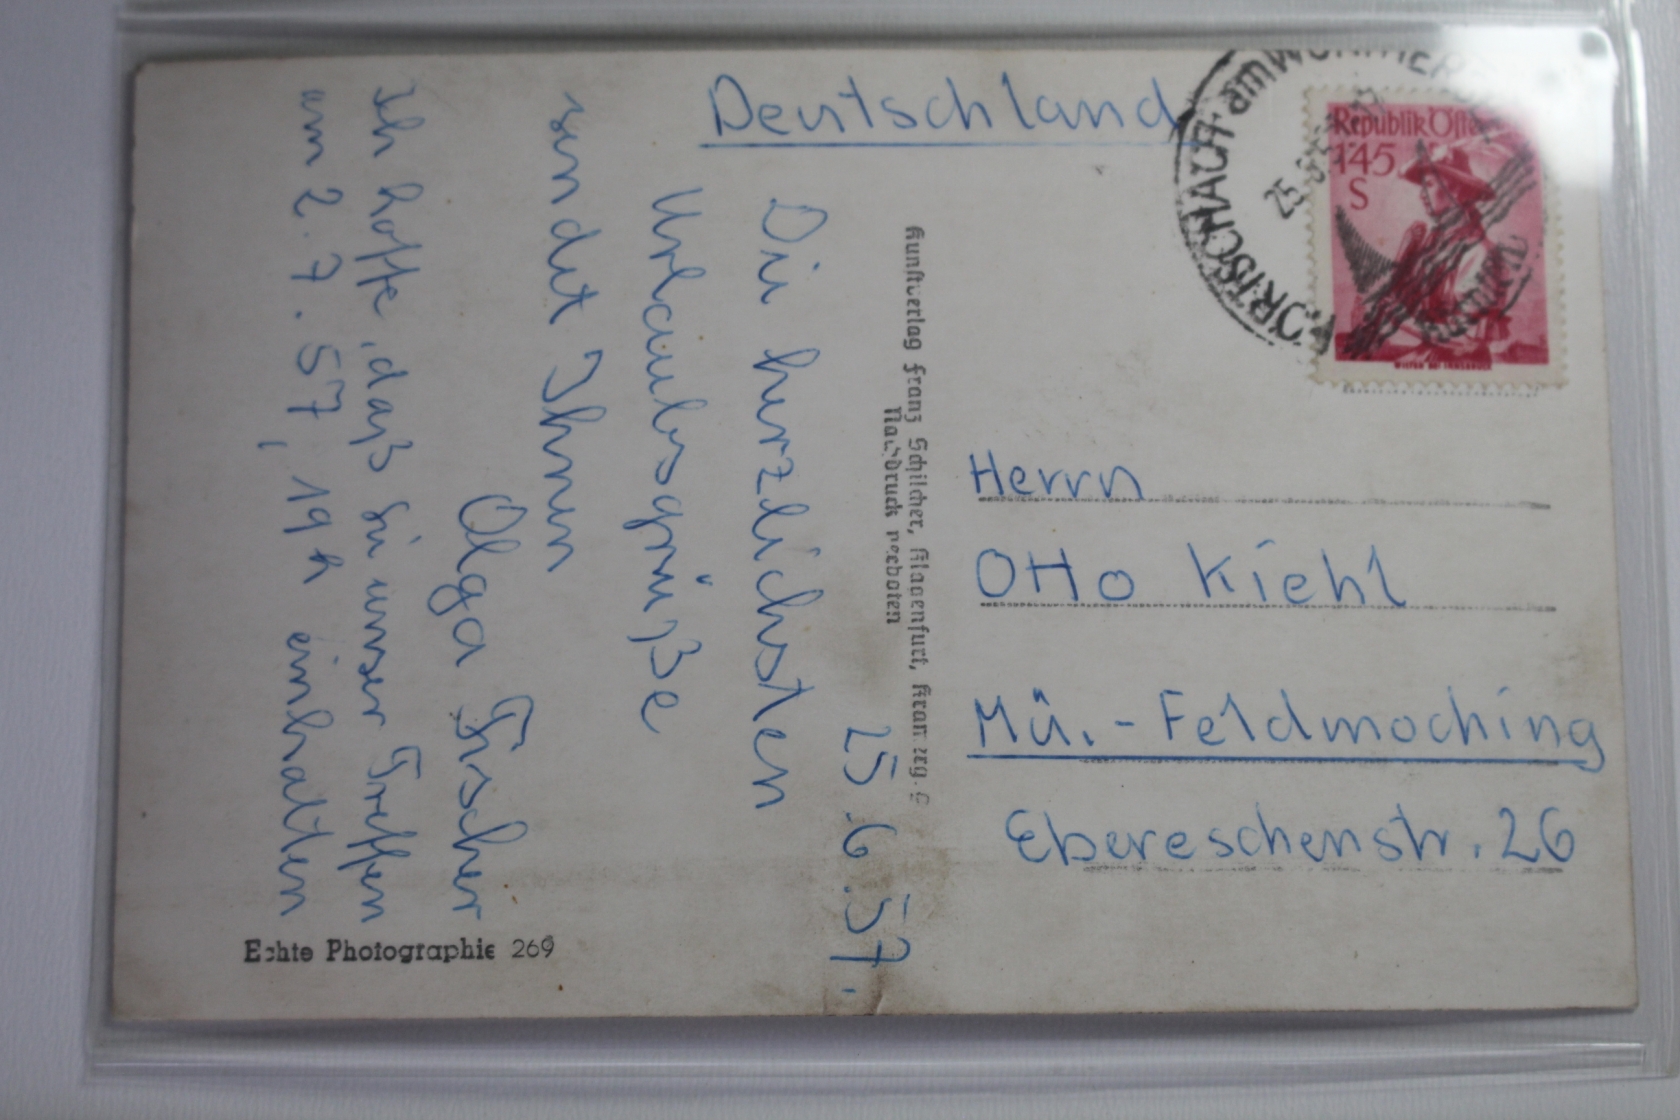 Deutschland
PÖRTSCHACH am WÖRTHERSEE
25.
Republik Öster
1·45
S
WILTEN BEI INNSBRUCK
Herrn
Otto Kiehl
Mü.-Feldmoching
Ebereschenstr. 26
Kunstverlag Franz Schilcher, Klagenfurt,
Nachdruck verboten
25.6.57.
Die herzlichsten
Urlaubsgrüße
sendet Ihnen
Olga Fischer
Ich hoffe, daß Sie unser Treffen
am 2.7.57, 19 h einhalten
Echte Photographie 269